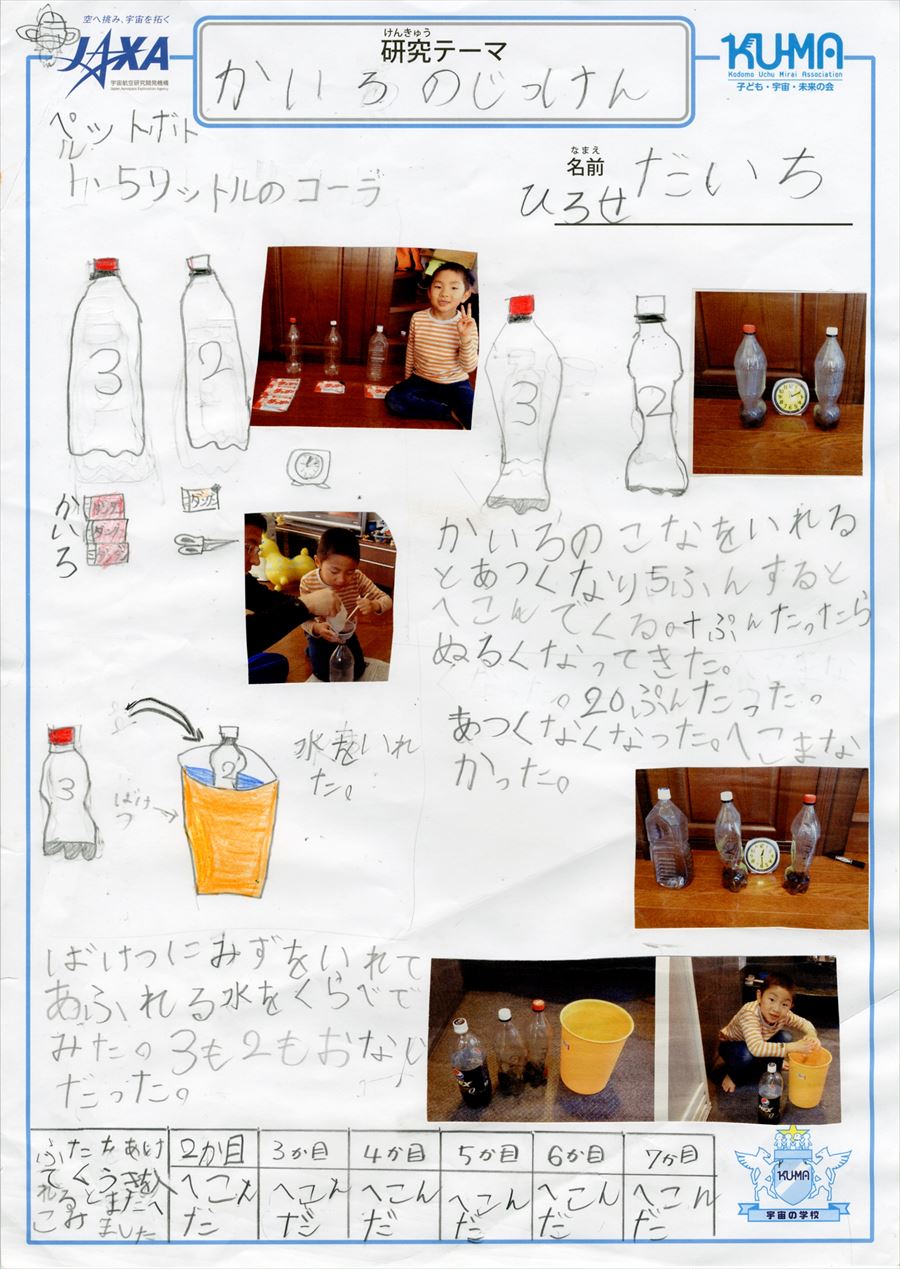 空へ挑み、宇宙を拓く
JAXA
宇宙航空研究開発機構
Japan Aerospace Exploration Agency
けんきゅう
研究テーマ
かいろのじっけん
KU-MA
Kodomo Uchu Mirai Association
子ども・宇宙・未来の会
ペットボトル
1.5リットルのコーラ
なまえ
名前
ひろせ だいち
3
2
3
2
かいろ
かいろのこなをいれる
とあつくなり5ふんすると
へこんでくる。十ぷんたったら
ぬるくなってきた。
。20ぷんたった。
あつくなくなった。へこまな
かった。
3
2
ばけつ
水をいれ
た。
ばけつにみずをいれて
あふれる水をくらべて
みた。3も2もおなじ
だった。
ふたをあけ
2か目
3か目
4か目
5か目
6か目
7か目
へこんだ
へこんだ
へこんだ
へこんだ
へこんだ
へこんだ
KU-MA
宇宙の学校